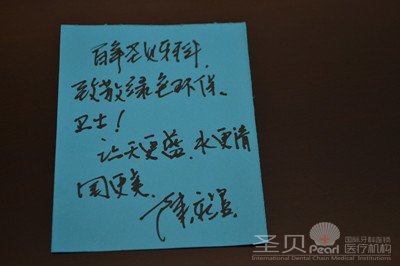 百年圣贝牙科,
致敬绿色环保
卫士!
让天更蓝,水更清
国更美.
圣贝
Pearl
国际牙科连锁
医疗机构
International Dental Chain Medical Institutions